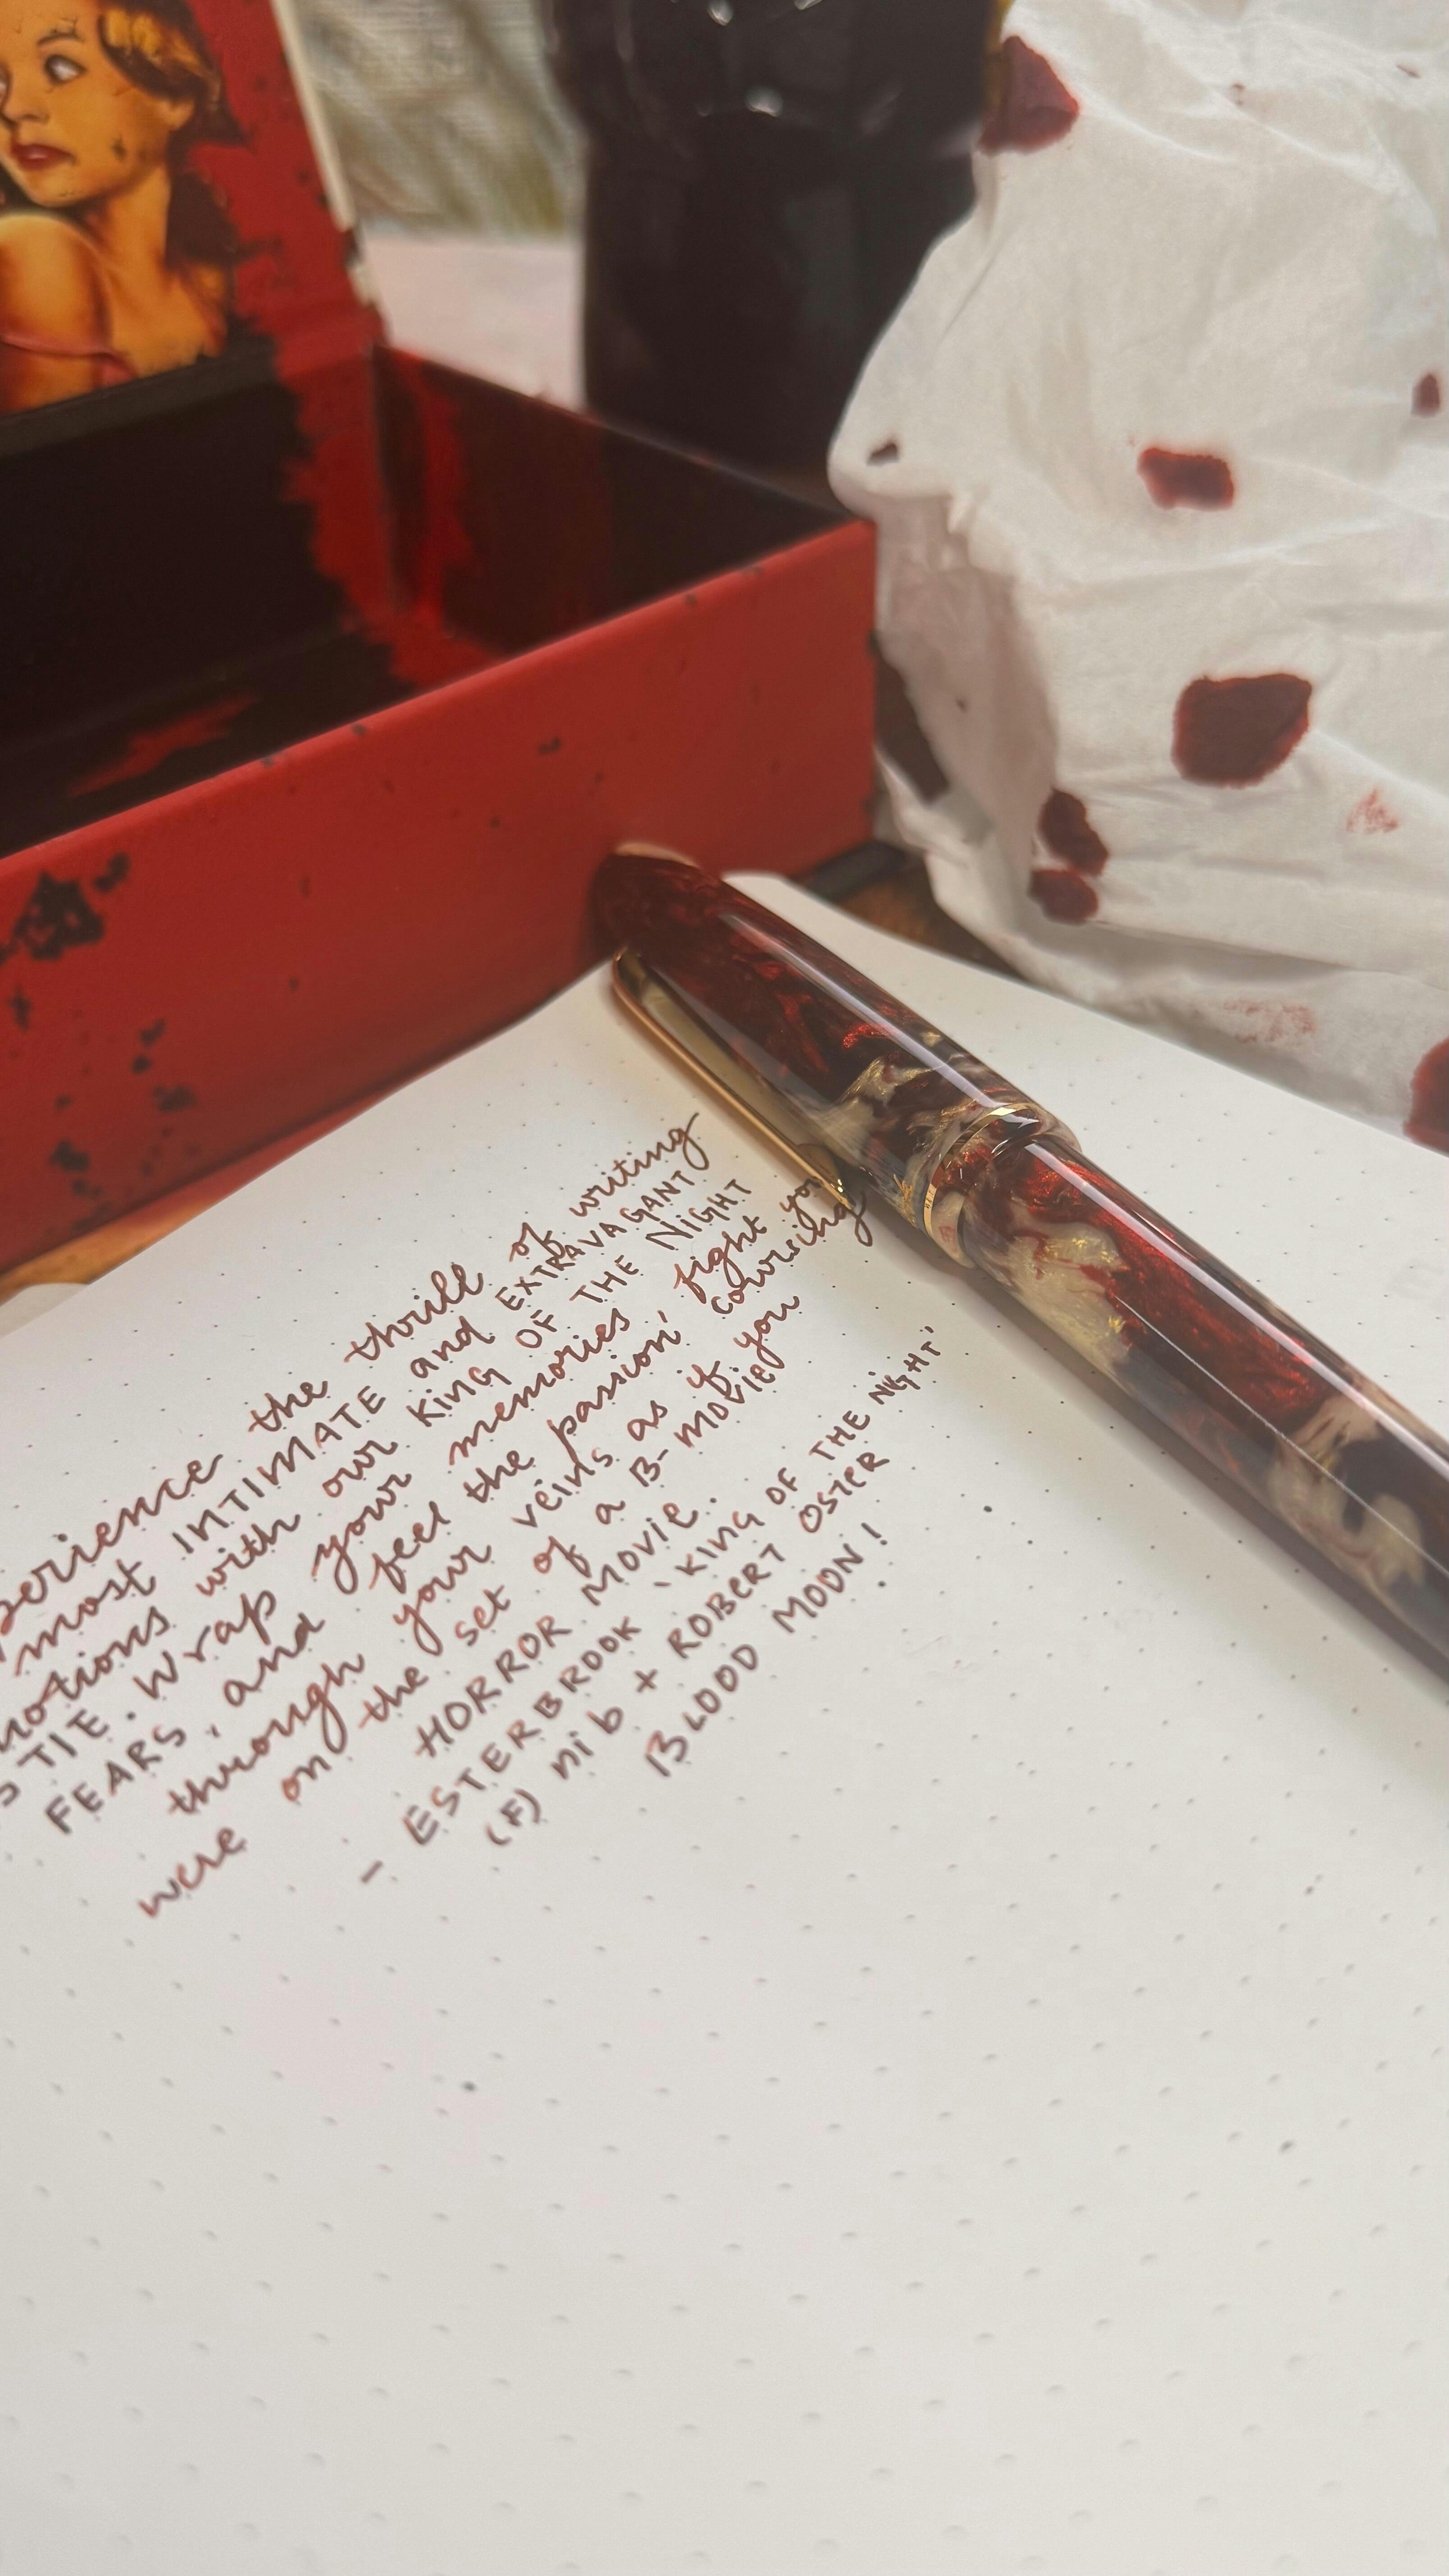 perience the thrill of writing
most INTIMATE and EXTRAVAGANT
motions with our KING OF THE NIGHT
STIE. Wrap your memories, fight you
FEARS, and feel the passion coursing
through your veins as if you
were on the set of a B-MOVIE
HORROR MOVIE.
- ESTERBROOK 'KING OF THE NIGHT'
(F) nib + ROBERT OSTER
BLOOD MOON!